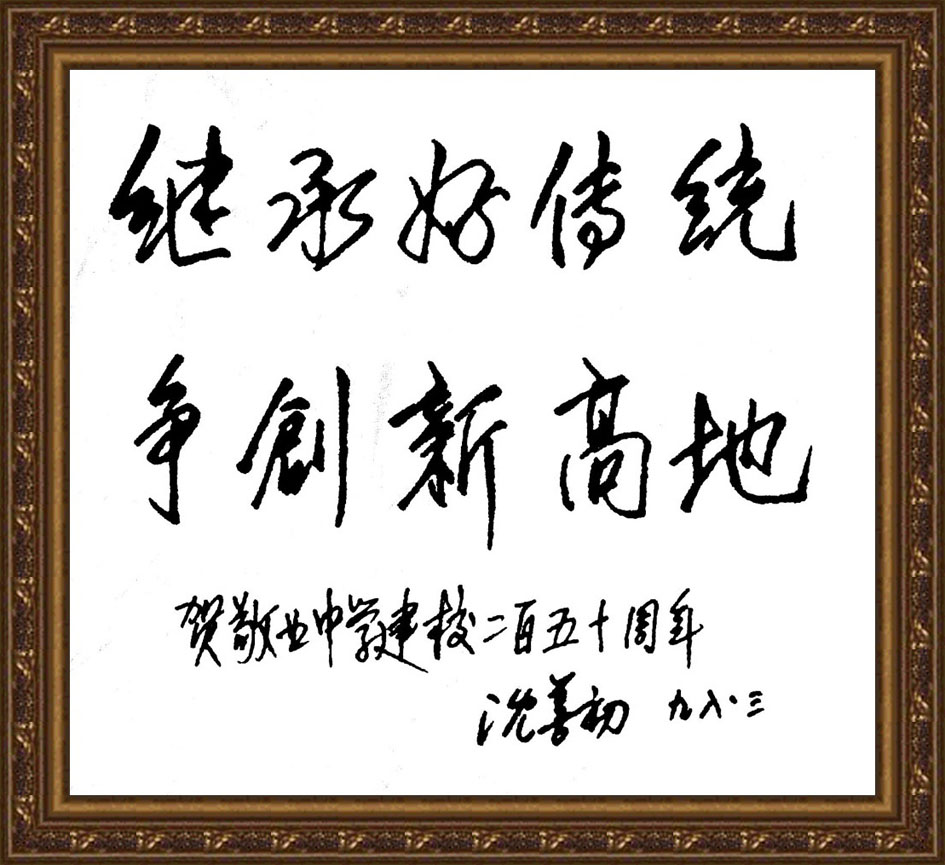 继承好传统
争創新高地
贺敬业中学建校二百五十周年
沈善初 九八·三